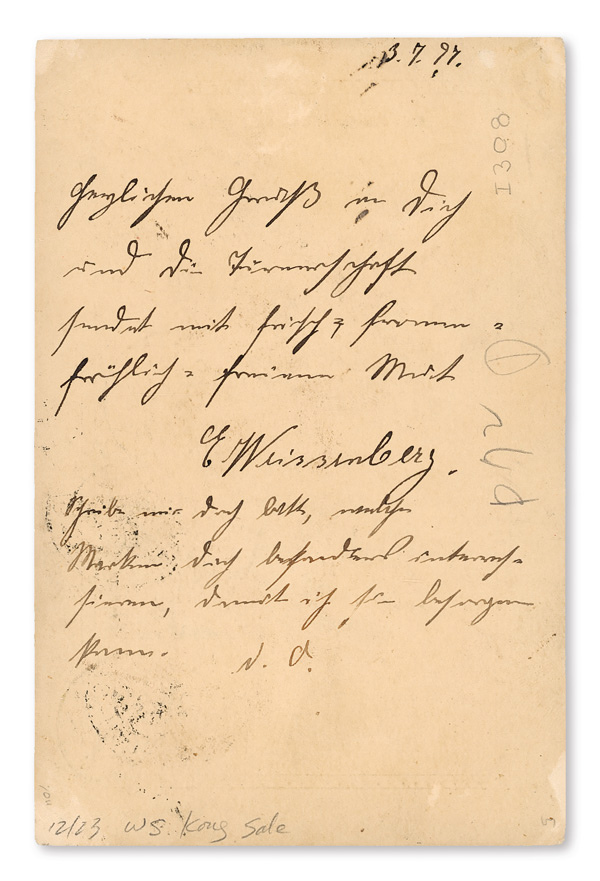 3.7.97.
I398
Herzlichen Gruß an Dich
und die Turnerschaft
sendet mit frisch = fromm =
fröhlich = freiem Mut
E Weissenberg.
Schreibe mir doch bitte, welche
Marken Dich besonders interes-
sieren, damit ich sie besorgen
kann. D. O.
12/23 WS Kong Sale